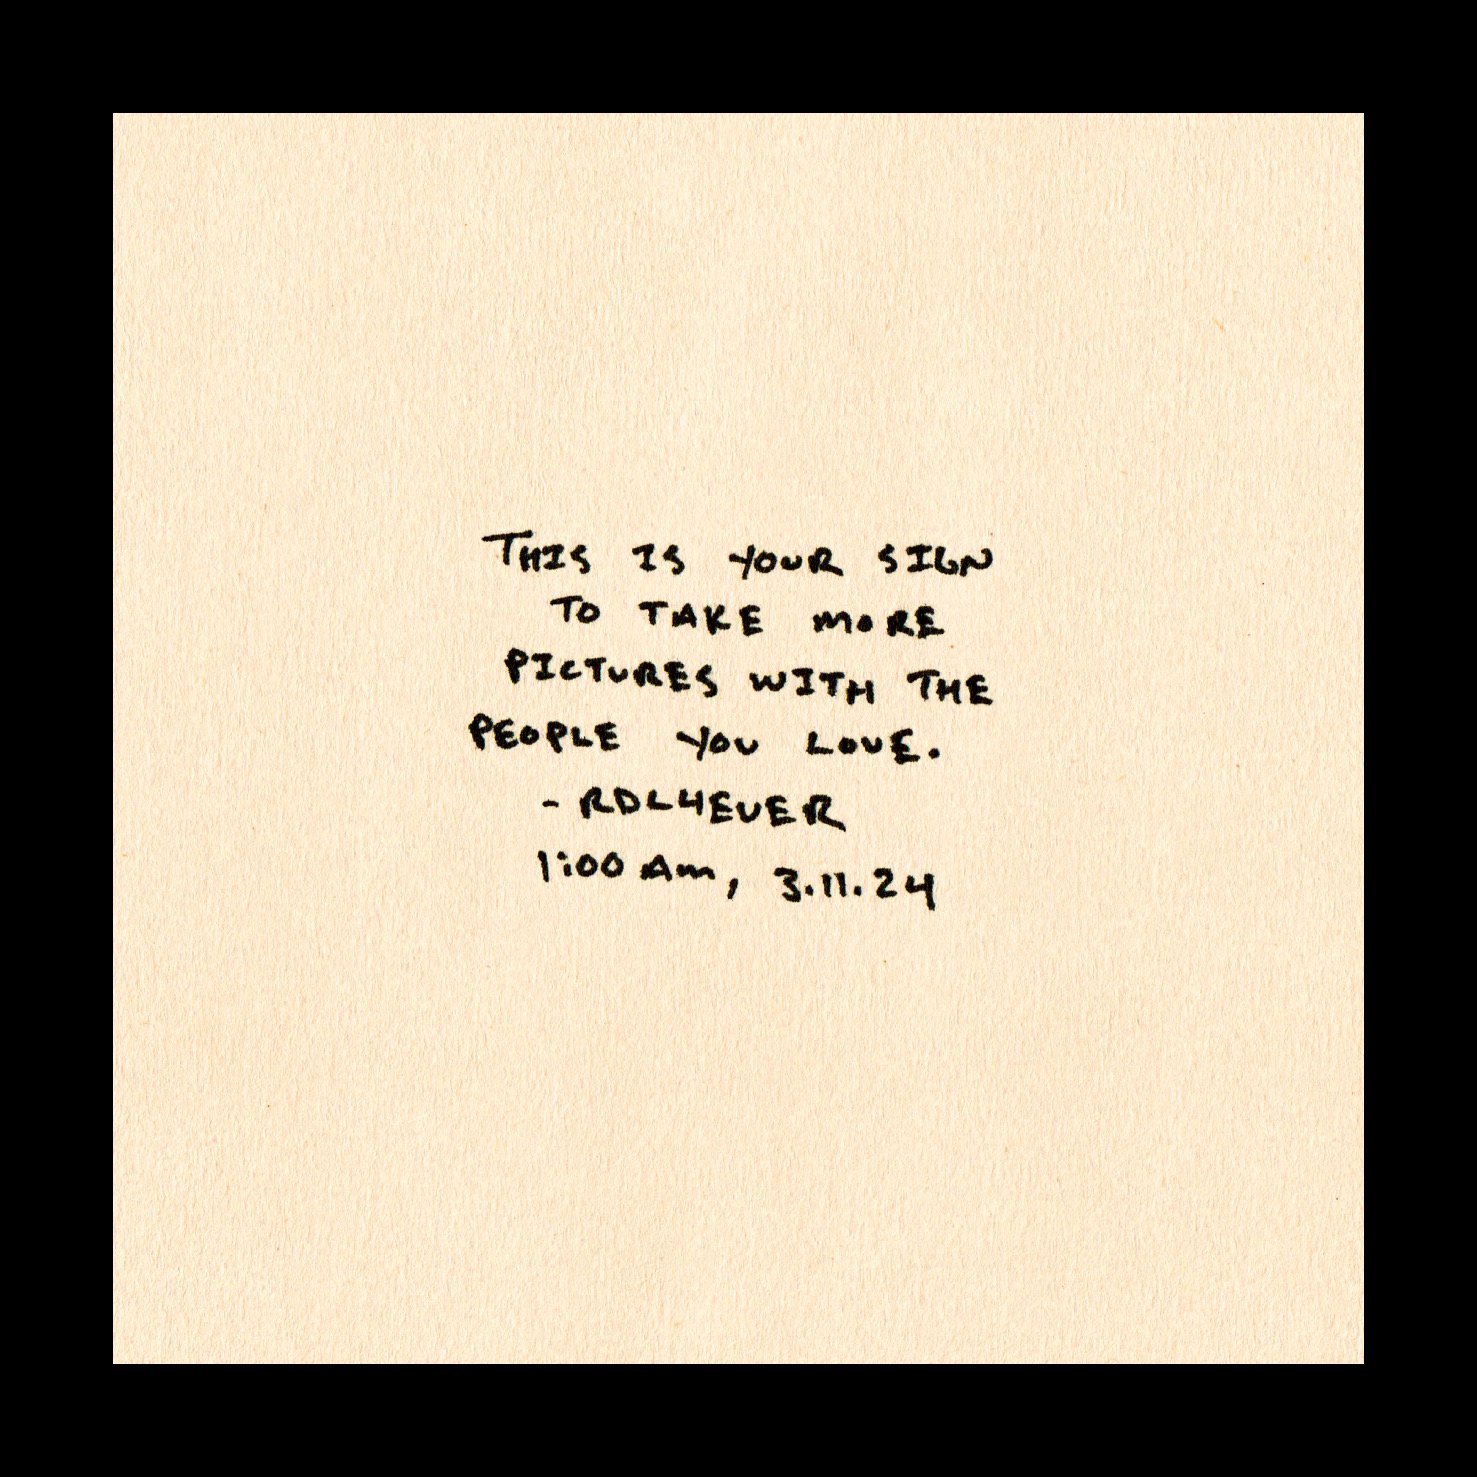 THIS IS YOUR SIGN
TO TAKE MORE
PICTURES WITH THE
PEOPLE YOU LOVE.
- RDL4EVER
1:00 AM, 3.11.24